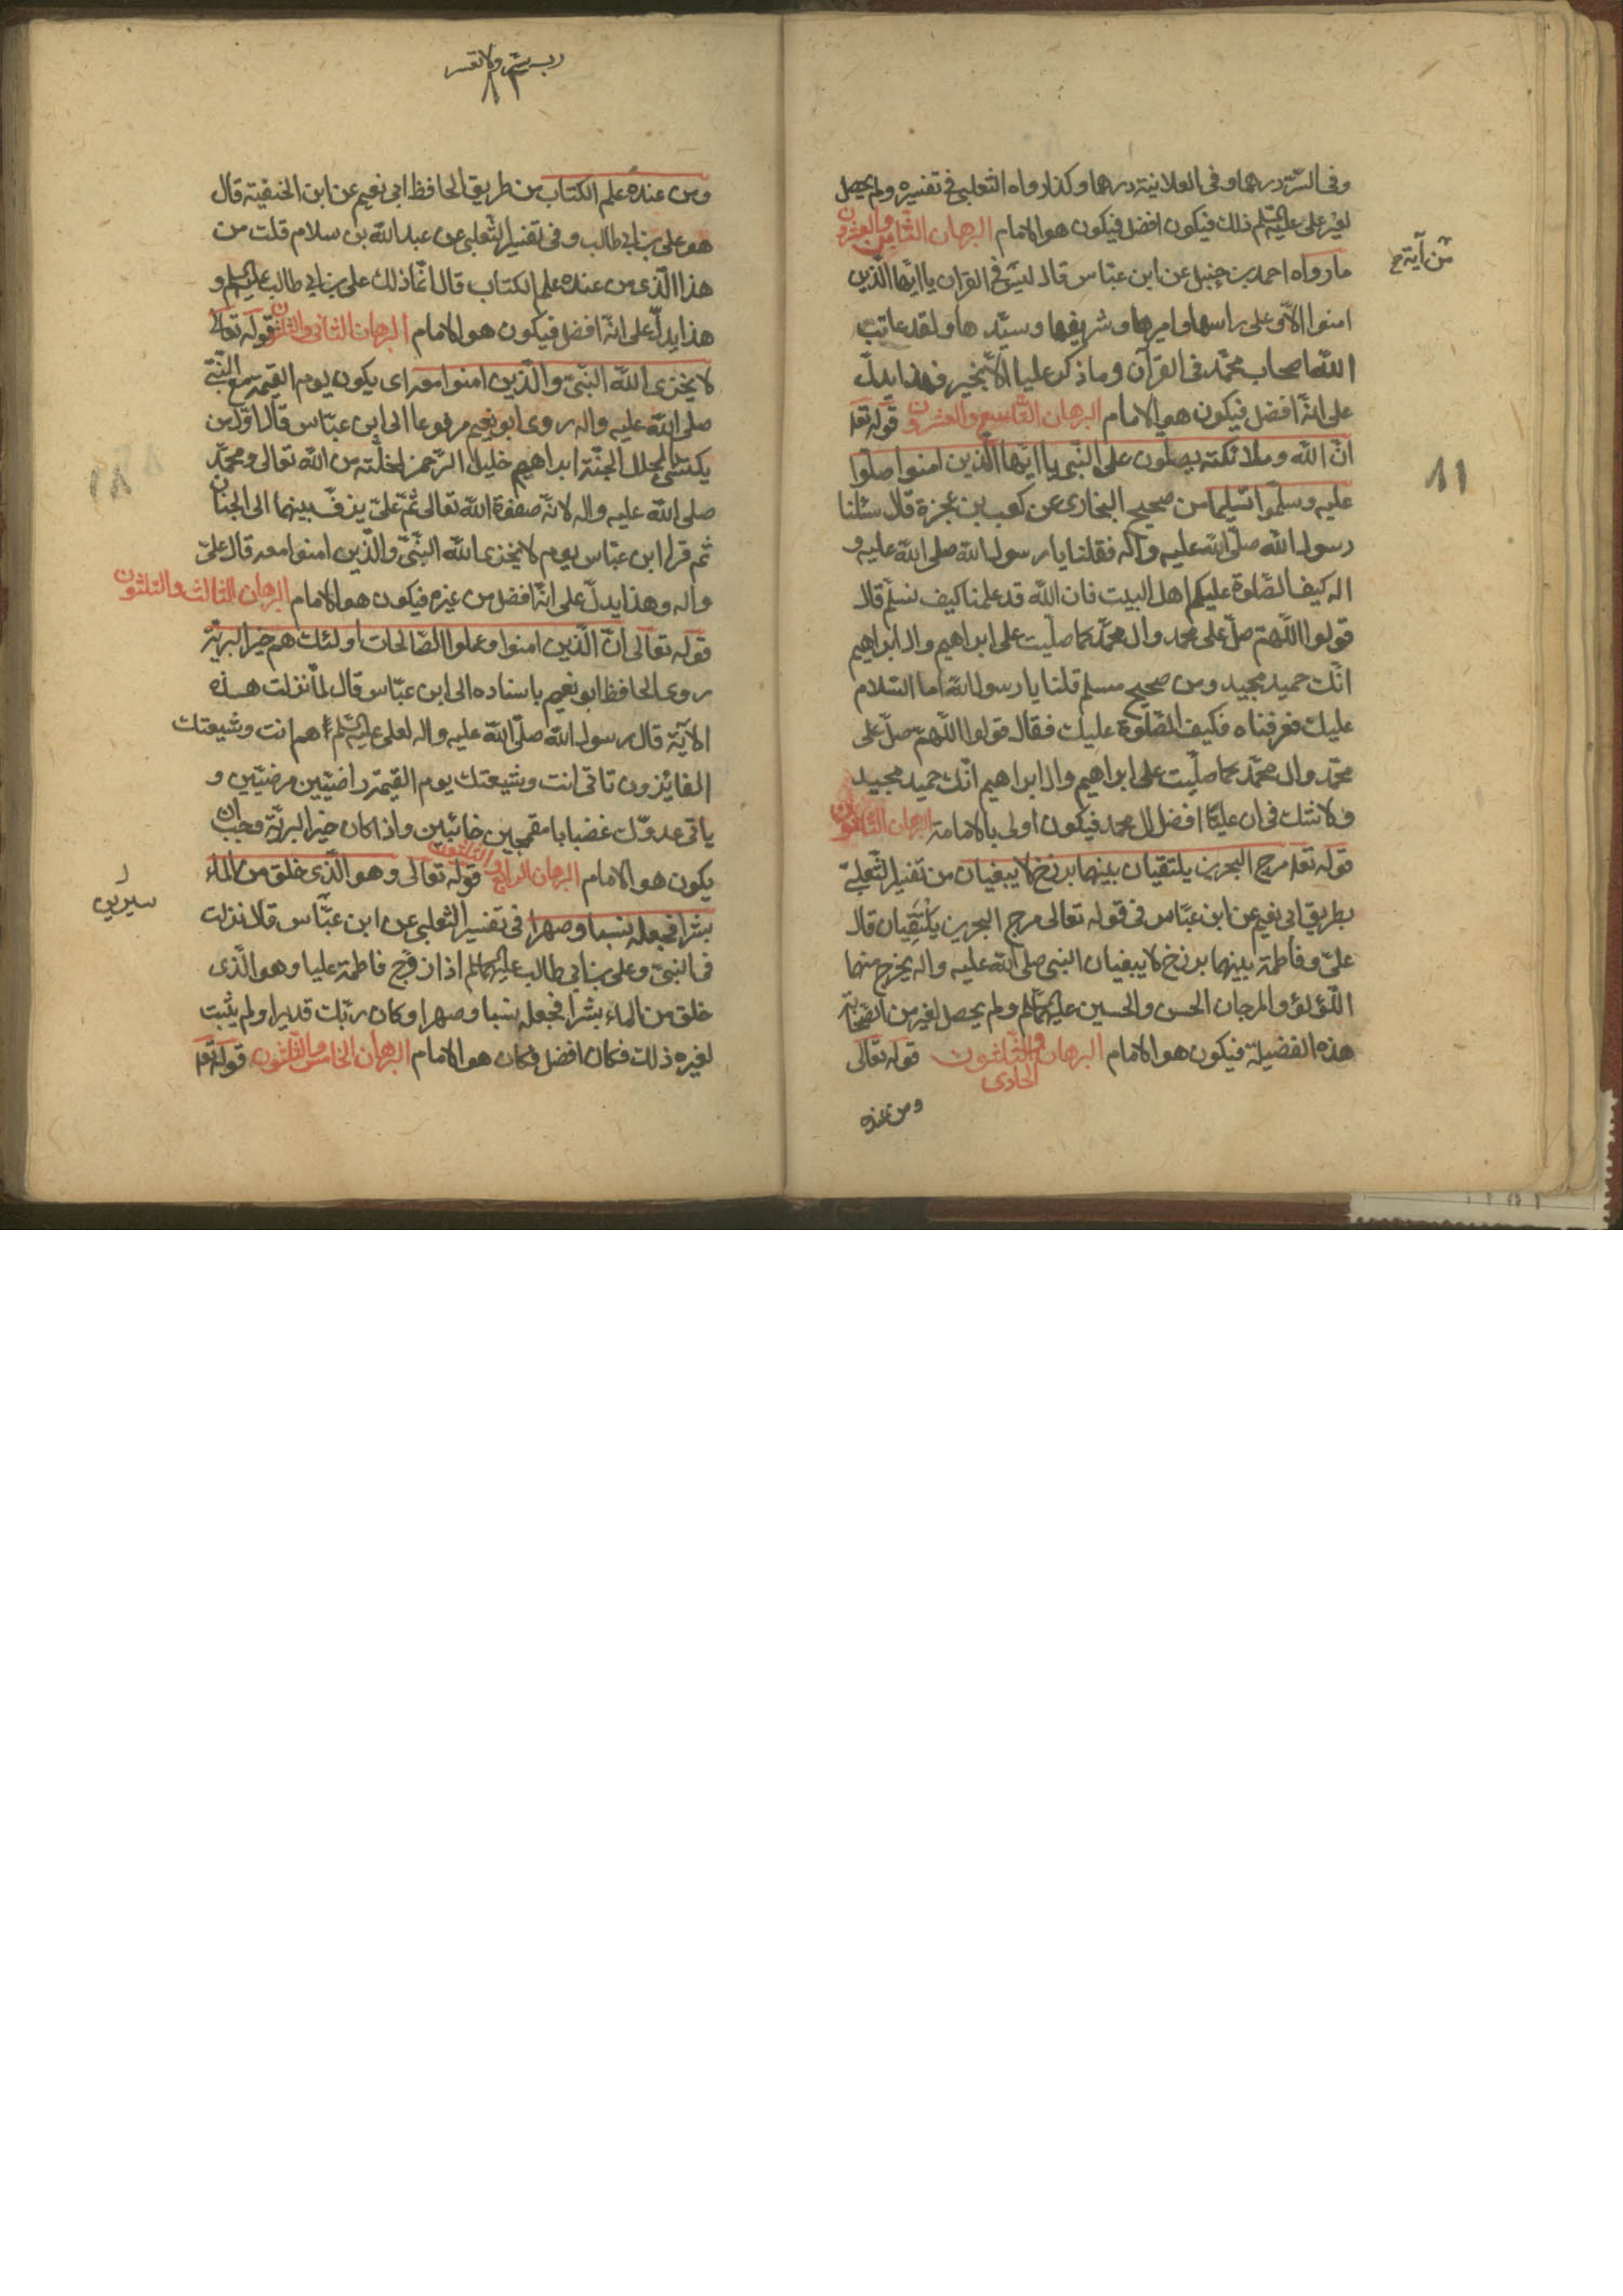 وفى السرّ درهما وفى العلانية درهما وكذا رواه الثعلبى فى تفسيره ولم يحصل
لغير على عليه السلم ذلك فيكون افضل فيكون هو الامام البرهان الثامن والعشرون
من آية
ما رواه احمد بن حنبل عن ابن عبّاس قال ليس فى القران يا ايّها الّذين
امنوا الّا وعلى راسها واميرها وشريفها وسيّدها ولقد عاتب
اللّه اصحاب محمّد فى القرآن وما ذكر عليا الّا بخير فهذا يدلّ
على انّه افضل فيكون هو الامام البرهان التاسع والعشرون قوله تعا
انّ اللّه وملائكته يصلّون على النّبى يا ايّها الّذين امنوا صلّوا
٨١
عليه وسلّموا تسليما من صحيح البخارى عن كعب بن عجزة قال سئلنا
رسول اللّه صلّى اللّه عليه وآله فقلنا يا رسول اللّه صلى اللّه عليه و
اله كيف الصّلوة عليكم اهل البيت فان اللّه قد علمنا كيف نسلّم قال
قولوا اللّهمّ صلّ على محمد وال محمّد كما صلّيت على ابراهيم وال ابراهيم
انّك حميد مجيد ومن صحيح مسلم قلنا يا رسول اللّه اما السّلام
عليك فعرفناه فكيف الصّلوة عليك فقال قولوا اللّهمّ صلّ على
محمّد وال محمّد كما صلّيت على ابراهيم وال ابراهيم انّك حميد مجيد
ولا شك فى ان عليّا افضل ال محمد فيكون اولى بالامامة البرهان الثلثون
قوله تعا مرج البحرين يلتقيان بينهما برزخ لا يبغيان من تفسير الثّعلبىّ
بطريق ابى نعيم عن ابن عبّاس فى قوله تعالى مرج البحرين يلتقيان قال
علىّ وفاطمة بينهما برزخ لا يبغيان النبى صلى اللّه عليه واله يخرج منهما
اللّؤلؤ والمرجان الحسن والحسين عليهما السلم ولم يحصل لغيره من الصّحابة
هذه الفضيلة فيكون هو الامام البرهان الحادى والثلثون قوله تعالى
ومن عنده
رب يسّر ولا تعسر
ومن عنده علم الكتاب من طريق الحافظ ابى نعيم عن ابن الحنفيّة قال
هو على بن ابى طالب وفى تفسير الثّعلبى عن عبد اللّه بن سلام قلت من
هذا الّذى من عنده علم الكتاب قال انّما ذلك على بن ابى طالب عليه السلم و
هذا يدلّ على انّه افضل فيكون هو الامام البرهان الثانى والثلثون قوله تعالى
لا يخزى اللّه النّبىّ والّذين امنوا معه اى يكون يوم القيمة مع النّبىّ
صلى اللّه عليه واله روى ابو نعيم مرفوعا الى ابن عبّاس قال اوّل من
يكتسى بحلل الجنّة ابراهيم خليل الرّحمن لخلّته من اللّه تعالى ومحمّد
صلى اللّه عليه واله لانّه صفوة اللّه تعالى ثمّ علىّ يزفّ بينهما الى الجنان
ثم قرا ابن عبّاس يوم لا يخزى اللّه النّبىّ والّذين امنوا معه قال علىّ
واله وهذا يدلّ على انّه افضل من غيره فيكون هو الامام البرهان الثالث والثلثون
قوله تعالى انّ الّذين امنوا وعملوا الصّالحات اولئك هم خير البريّة
روى الحافظ ابو نعيم باسناده الى ابن عبّاس قال لمّا نزلت هذه
الآية قال رسول اللّه صلّى اللّه عليه واله لعلى عليه السّلم هم انت وشيعتك
الفائزون تاتى انت وشيعتك يوم القيمة راضيّين مرضيّين و
ياتى عدوّك غضبابا مقمحين خائبين واذا كان خير البريّة وجب ان
يكون هو الامام البرهان الرابع والثلثون قوله تعالى وهو الّذى خلق من الماء
سيرين
بشرا فجعله نسبا وصهرا فى تفسير الثعلبى عن ابن عبّاس قال نزلت
فى النبىّ وعلى بن ابى طالب عليهما السلم اذ زوّج فاطمة عليا وهو الّذى
خلق من الماء بشرا فجعله نسبا وصهرا وكان ربّك قديرا ولم يثبت
لغيره ذلك فكان افضل فكان هو الامام البرهان الخامس والثلثون قوله تعا